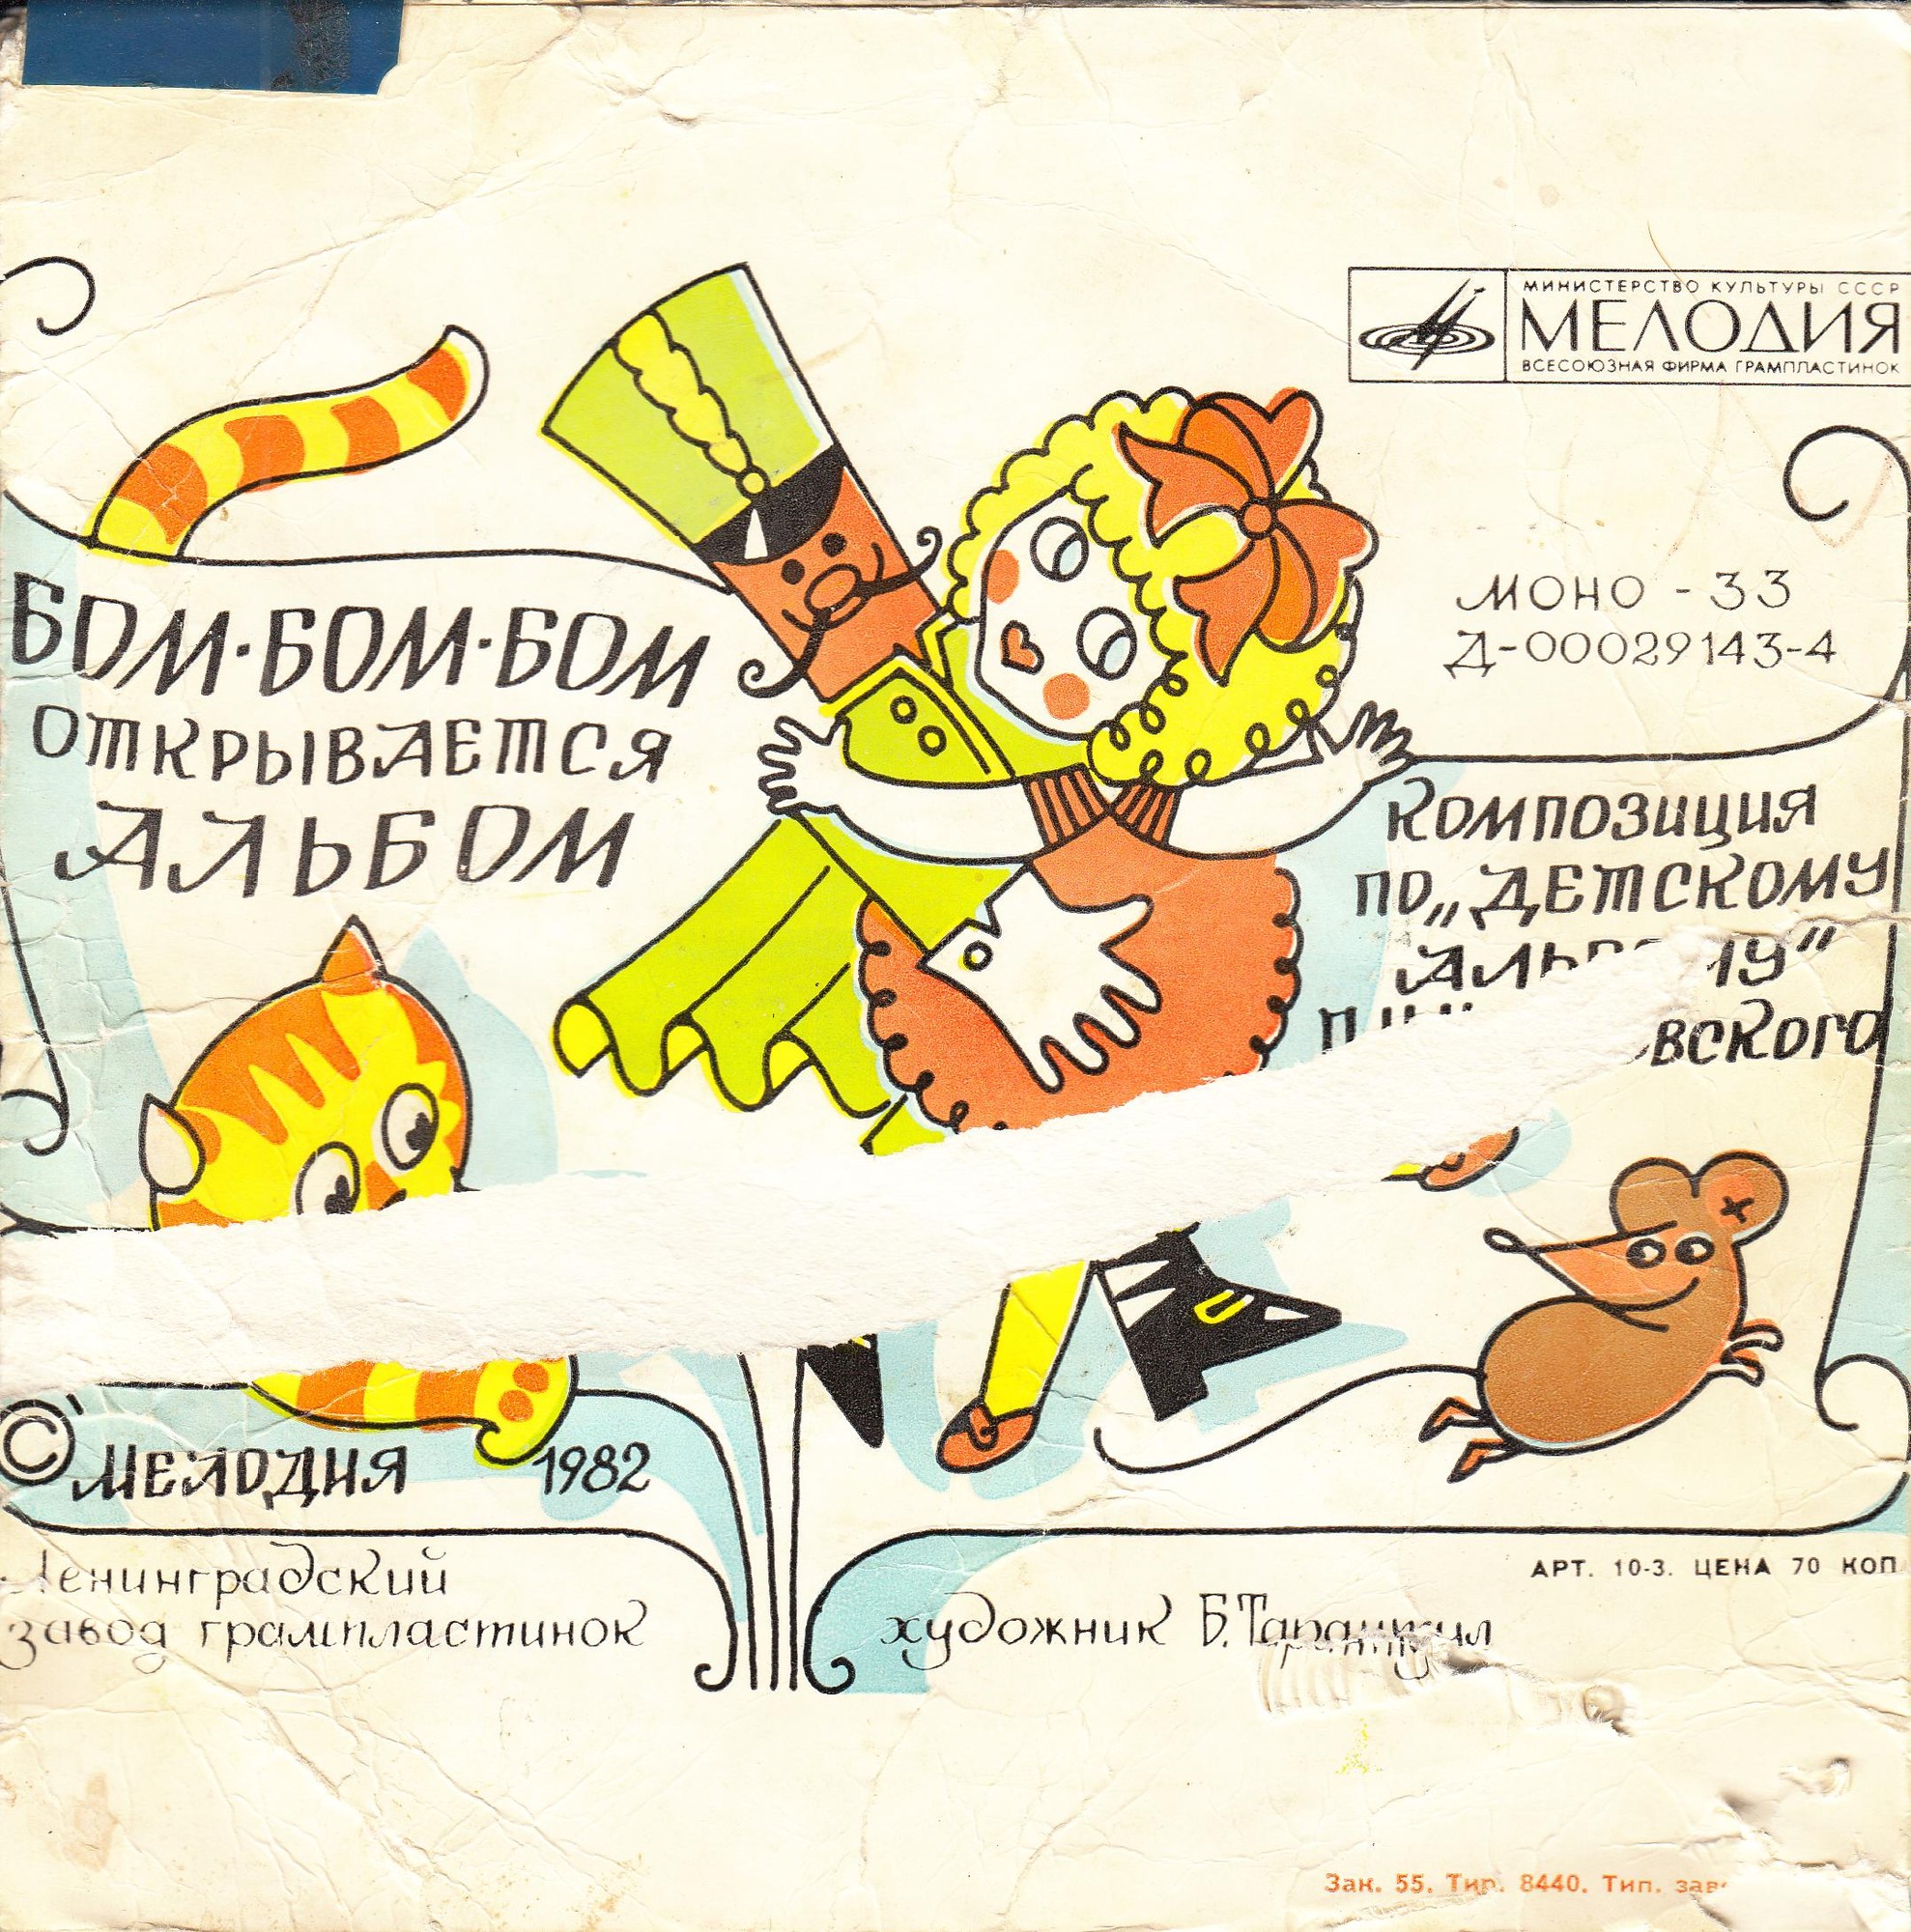 МИНИСТЕРСТВО КУЛЬТУРЫ СССР
МЕЛОДИЯ
ВСЕСОЮЗНАЯ ФИРМА ГРАМПЛАСТИНОК
МОНО - 33
Д-00029143-4
БОМ·БОМ·БОМ
ОТКРЫВАЕТСЯ
АЛЬБОМ
КОМПОЗИЦИЯ
ПО „ДЕТСКОМУ
© МЕЛОДИЯ 1982
Ленинградский
завод грампластинок
АРТ. 10-3. ЦЕНА 70 КОП
художник Б.
Зак. 55. Тир. 8440. Тип.